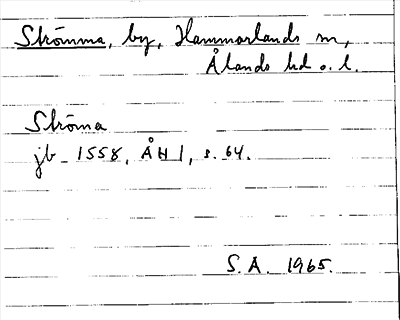 Strömma, by, Hammarlands sn,
Ålands hd o. l.
Ströma
jb 1558, ÅH 1, s. 64.
S.A. 1965.